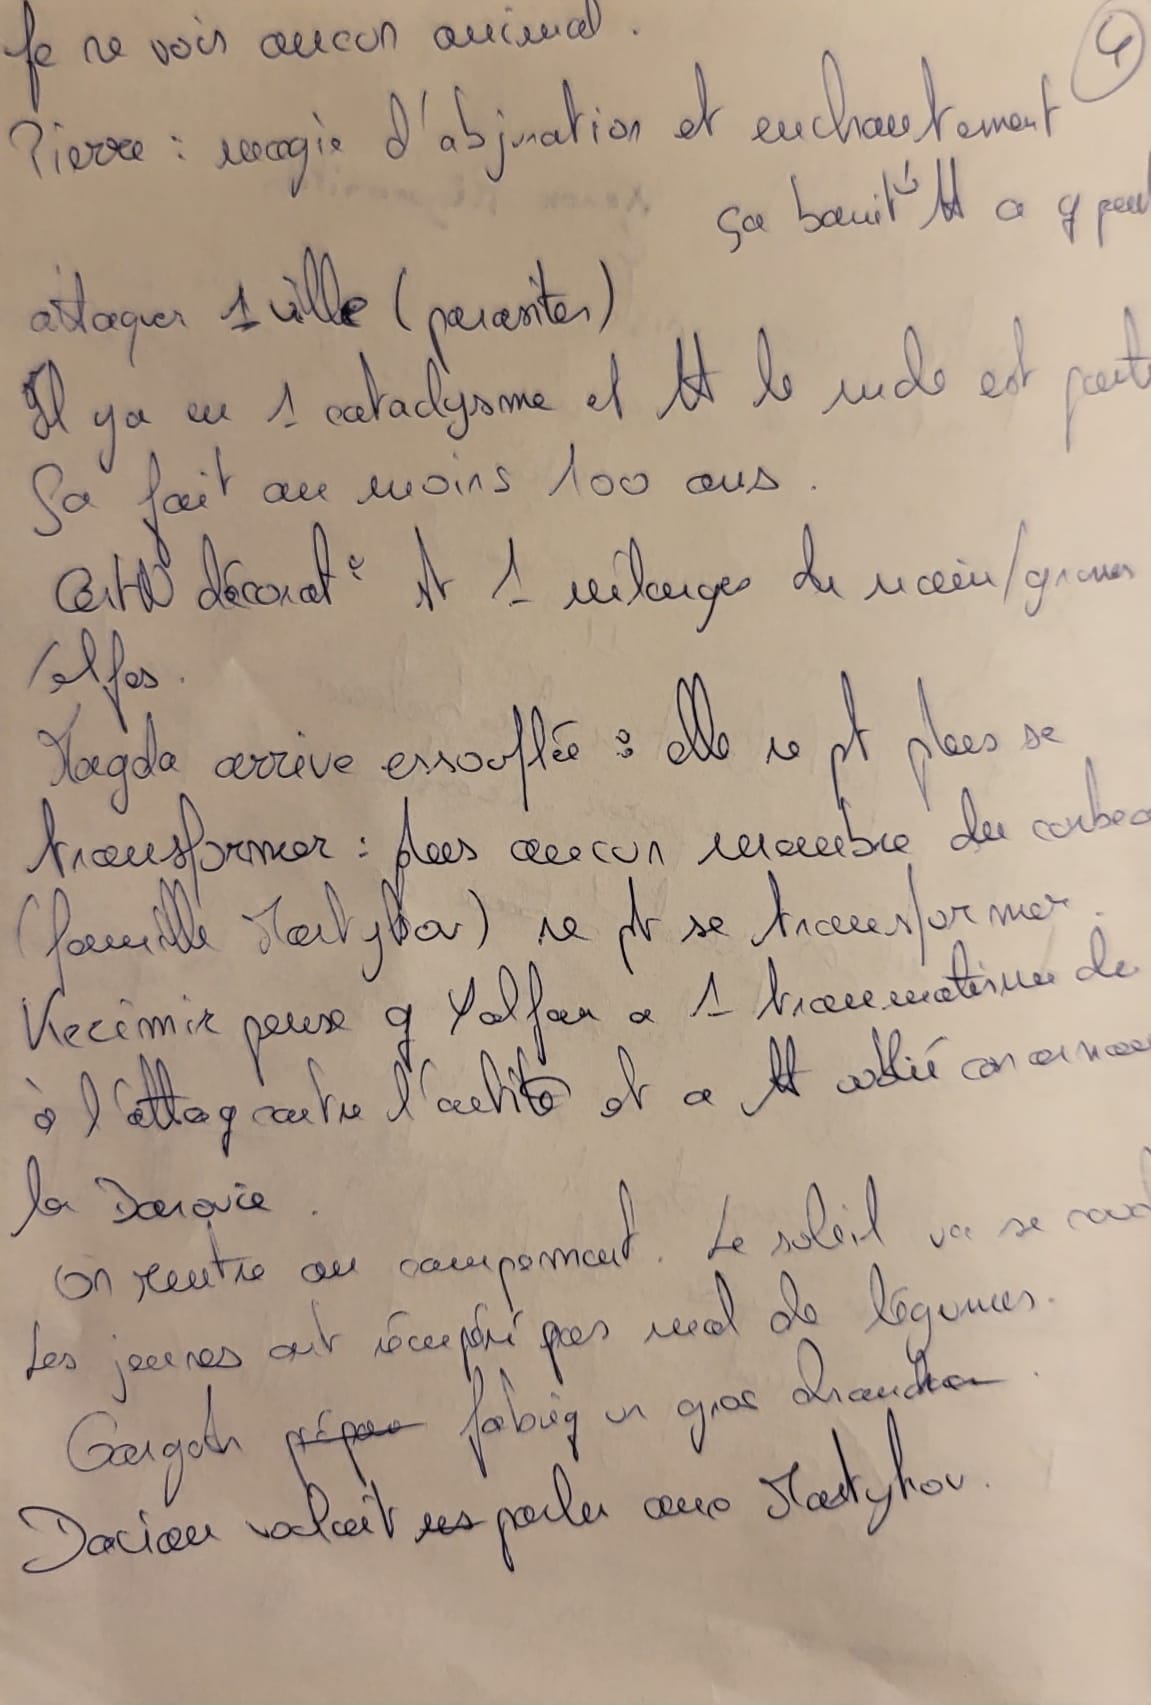 Je ne vois aucun animal.
4
Pierre : magie d'abjuration et enchantement
ça bannit tt ce q peut
attaquer 1 ville (parasites)
Il y a eu 1 cataclysme et tt le mde est parti
Ça fait au moins 100 ans.
Cette décorat° st 1 mélange de nain/gnomes
/elfes.
Magda arrive essouflée : elle ne pt plus se
transformer : plus aucun membre du corbeau
(famille Martykov) ne pt se transformer.
Kecimir pense q Yalfan a 1 traumatisme de
à l'attaq contre l'entité et a tt oublié concernant
la Darovie.
On rentre au campement. Le soleil va se couch
Les jeunes ont récupéré pas mal de légumes.
Gargoth prépare fabriq un gros chaudron.
Dacian voulait ns parler aux Martykov.